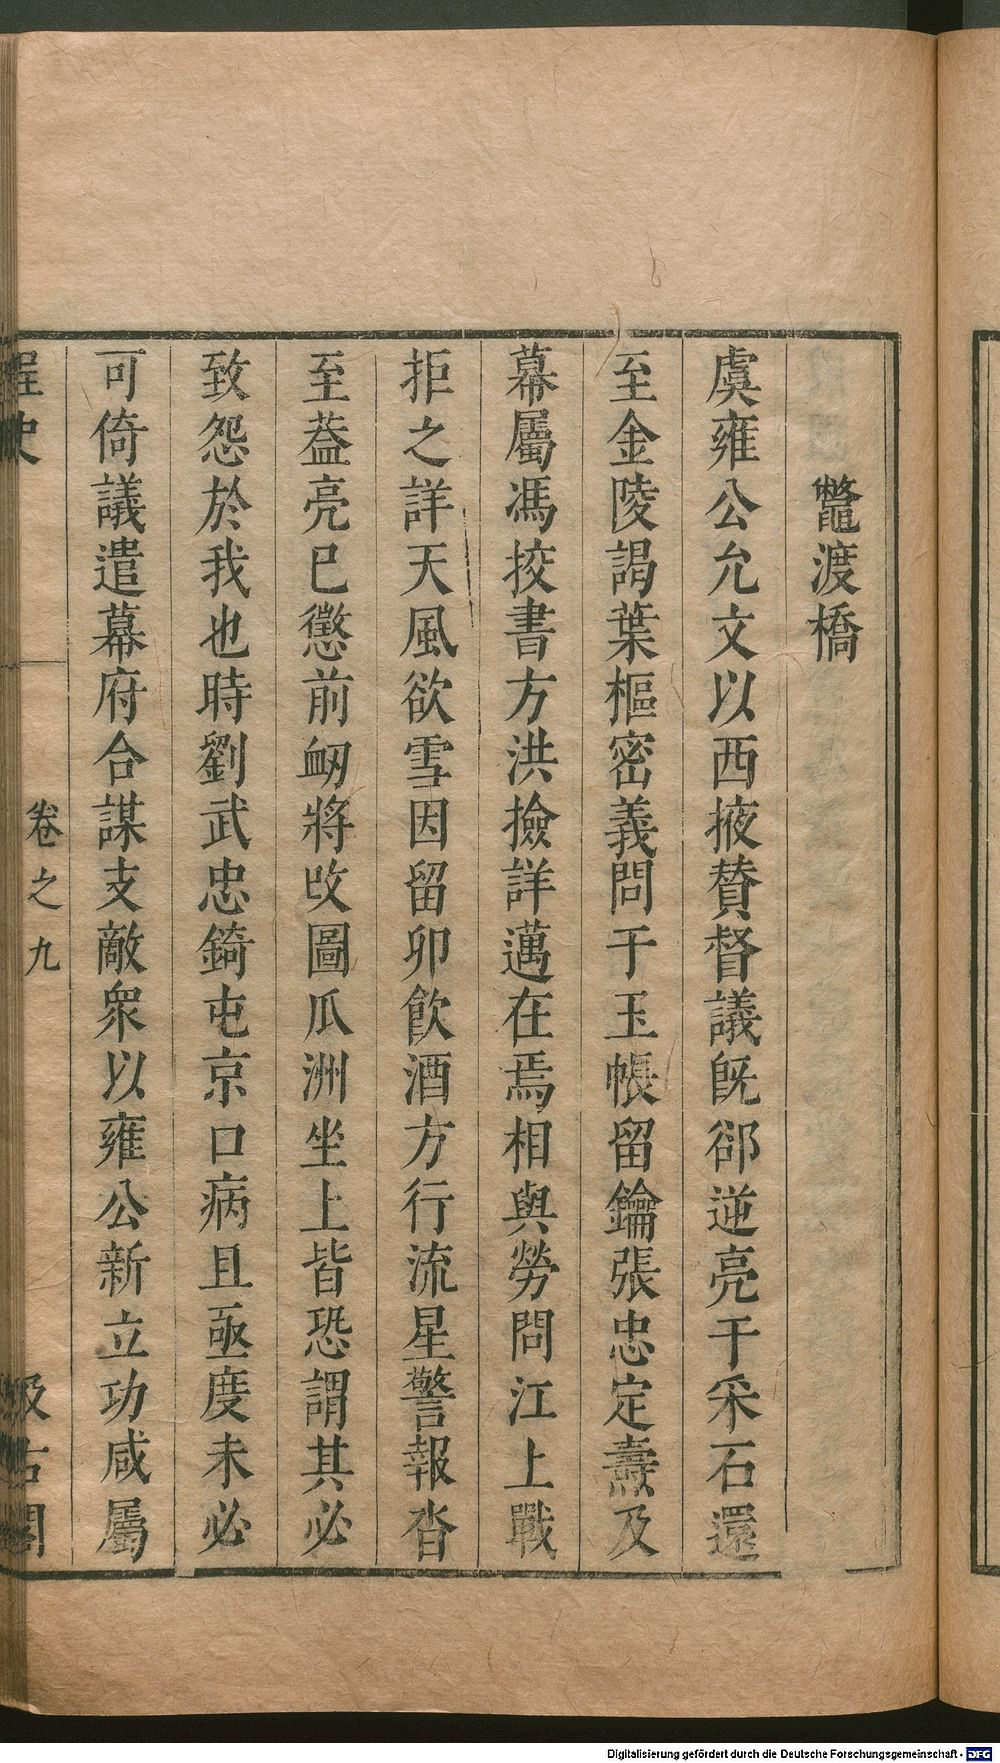 鼈渡橋
虞雍公允文以西掖賛督議旣郤逆亮于采石還
至金陵謁葉樞密義問于玉帳留鑰張忠定燾及
幕屬馮挍書方洪撿詳邁在焉相與勞問江上戰
拒之詳天風欲雪因留卯飮酒方行流星警報沓
至葢亮已懲前衂將改圖瓜洲坐上皆恐謂其必
致怨於我也時劉武忠錡屯京口病且亟度未必
可倚議遣幕府合謀支敵衆以雍公新立功咸屬
桯史 卷之九 汲古閣
Digitalisierung gefördert durch die Deutsche Forschungsgemeinschaft - DFG